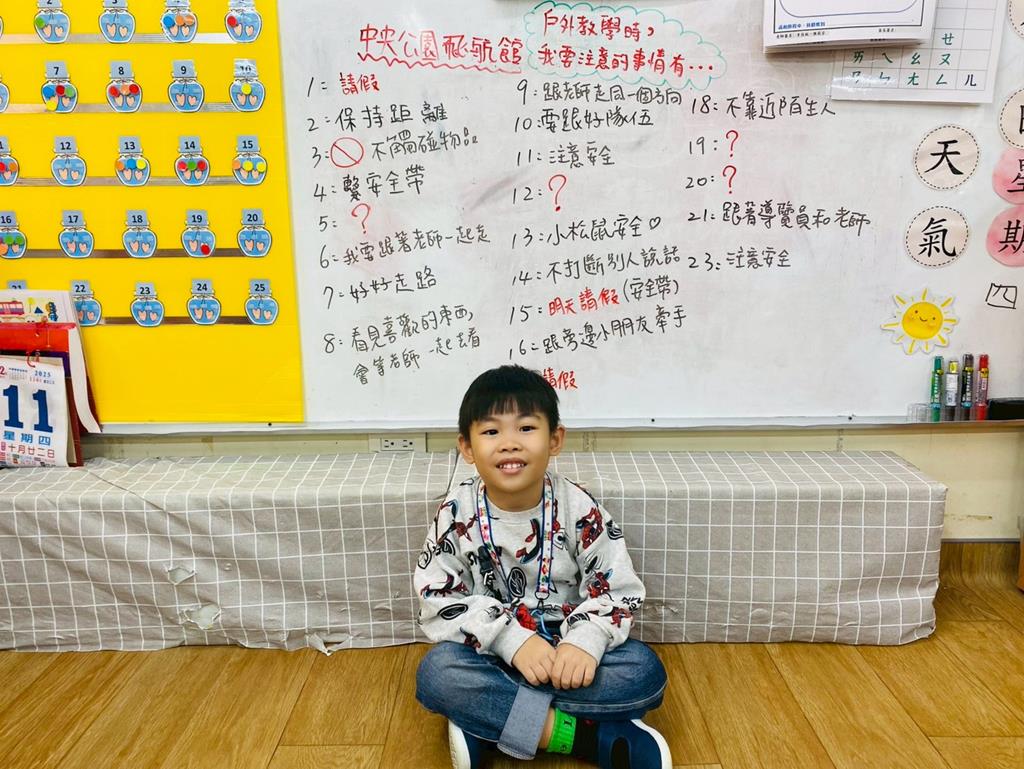 中央公園飛航館
戶外教學時，
我要注意的事情有...
1：請假
2：保持距離
3：不觸碰物品
4：繫安全帶
5：？
6：我要跟著老師一起走
7：好好走路
8：看見喜歡的東西，
會等老師一起去看
9：跟老師走同一個方向
10：要跟好隊伍
11：注意安全
12：？
13：小松鼠安全♡
14：不打斷別人說話
15：明天請假(安全帶)
16：跟旁邊小朋友牽手
請假
18：不靠近陌生人
19：？
20：？
21：跟著導覽員和老師
23：注意安全
2 3 4 5
7 8 9 10
12 13 14 15
16 17 18 19 20
22 23 24 25
2025
11
星期四
十月廿二日
ㄝ
ㄞ ㄟ ㄠ ㄡ
ㄢ ㄣ ㄤ ㄥ ㄦ
天
氣
星
期
四